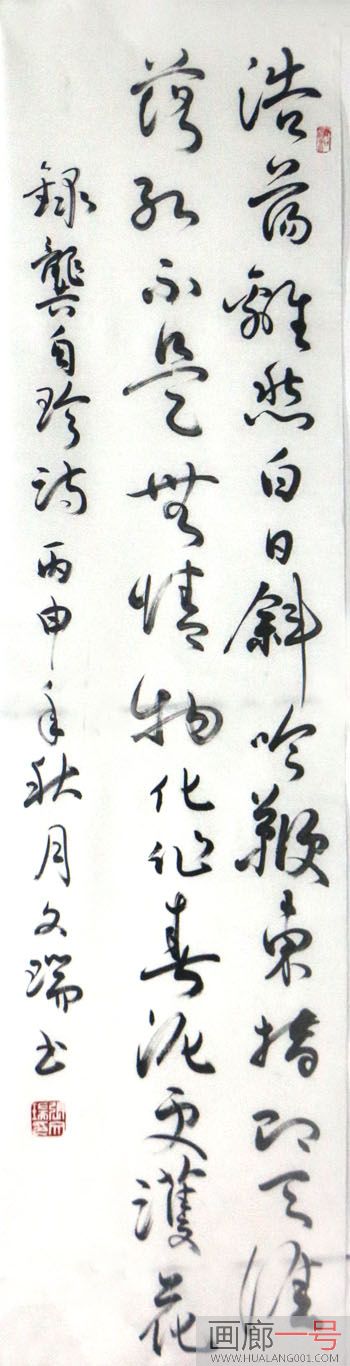 浩蕩離愁白日斜吟鞭東指即天涯
落紅不是無情物化作春泥更護花
録龔自珍詩丙申年秋月文瑞书
画廊一号
WWW.HUALANG001.COM